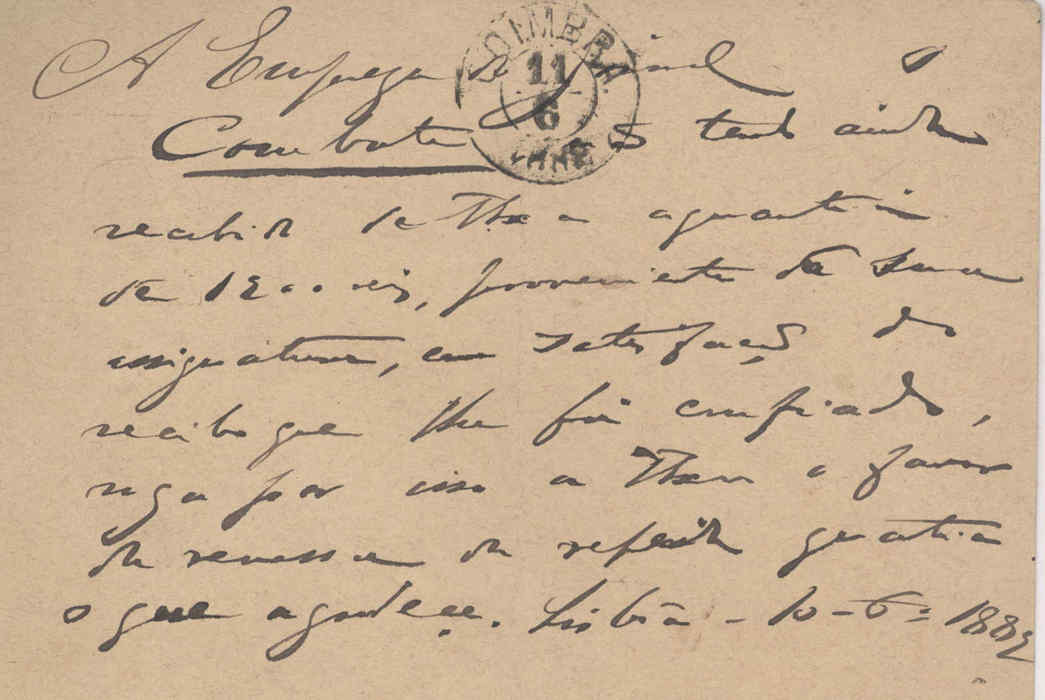 A Empreza do Jornal o
Combate não tendo ainda
recebido de Vexa a quantia
de 1200 reis, proveniente da sua
assignatura, em satisfação do
recibo que lhe foi confiado,
roga por isso a Vexa o favor
da remessa da referida quantia
o que agradece. Lisbôa - 10-6= 1882
COIMBRA
11
6